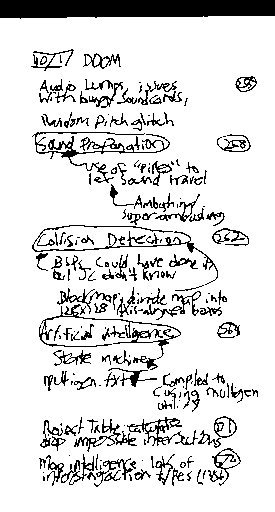 10/17 DOOM
Audio Lumps, issues
with buggy soundcards,
Random Pitch glitch
Sound Propagation 258
use of "pipes" to
let sound travel
Ambushing/
super-ambushing
Collision Detection 262
BSPs could have done it
but JC didn't know
Blockmap: divide map into
128x128 axis-aligned boxes
Artificial intelligence
State machines
multigen.txt Compiled to
C using multigen
utility
Reject Table: 
drop impossible intersections
Map intelligence: lots of
types